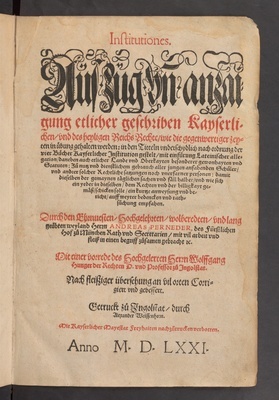 Institutiones.
Außzug vñ anzai=
gung etlicher geschriben Kayserli=
chen/ vnd des heyligen Reichs Rechte/ wie die gegenwertiger zey=
ten in übung gehalten werden: in den Titeln vnderschydlich nach ordnung der
vier Bücher Kayserlicher Institution gestelt/ mit einfürung Lateinischer alle=
gation/ daneben auch etlicher Landt vnd Oberkayt besonderer gewonhayten vnd
Statuten: Allen
vnd andere solcher Rechtliche
dieselben der gemaynen täglichen Sachen vnd Fäll halber/ vnd wie sich
ein yeder in dieselben/ dem Rechten vnd der billigkayt ge=
mäß schicken solle/ ein kurtze anweysung vnd be=
richt/ auff weyter bedencken vnd rath=
schlagung empfahen.
Durch den Ehrnuesten/ Hochgelehrten/ wolberedten/ vnd lang
geübten weyland Herrn ANDREAS PERNEDER, des Fürstlichen
Hof zů München Rath vnd Secretarien/ mit vil arbeit vnd
fleiß in einen begriff zůsamen gebracht ꝛc.
Mit einer vorrede des Hochgelerten Herrn Wolffgang
Hunger der Rechten D. vnd Professor zů Ingolstat.
Nach fleißiger übersehung an vil orten Corri=
giert vnd gebessert.
Getruckt zů Ingolstat/ durch
Alexander Weissenhorn.
Mit Kayserlicher Mayestat Freyhaiten nachzetrucken verbotten.
Anno M. D. LXXI.